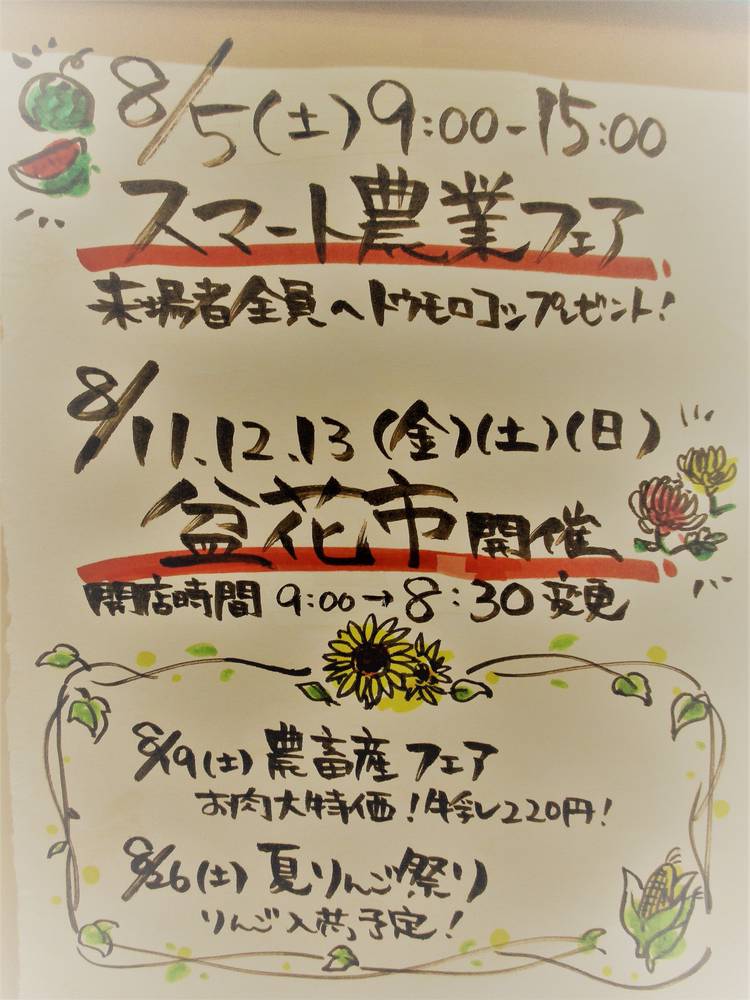 8/5(土)9:00-15:00
スマート農業フェア
来場者全員へトウモロコシプレゼント!
8/11.12.13(金)(土)(日)
盆花市開催
開店時間 9:00→8:30変更
8/19(土)農畜産フェア
お肉大特価!牛乳220円!
8/26(土)夏りんご祭り
りんご入荷予定!